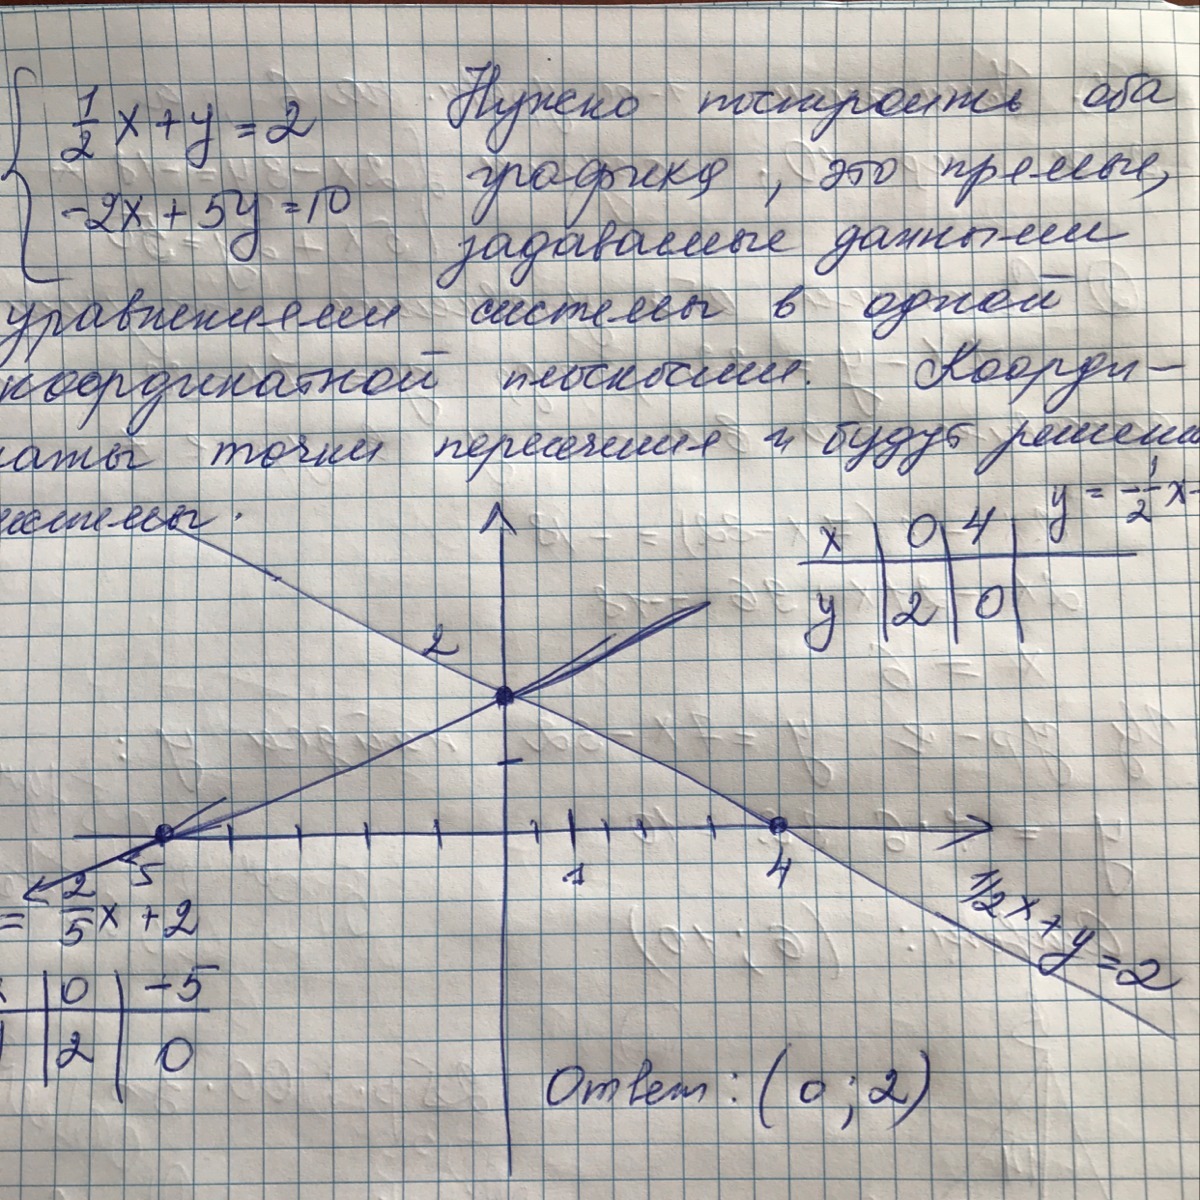 1/2 x + y = 2
-2x + 5y = 10
Нужно построить оба
графика, это прямые,
задаваемые данными
уравнениями системы в одной
координатной плоскости. Коорди-
наты точки пересечения и будут решени
системы.
y = -1/2 x
x 0 4
y 2 0
2
5
1
4
1/2 x + y = 2
= 2/5 x + 2
0 -5
2 0
Ответ: (0; 2)